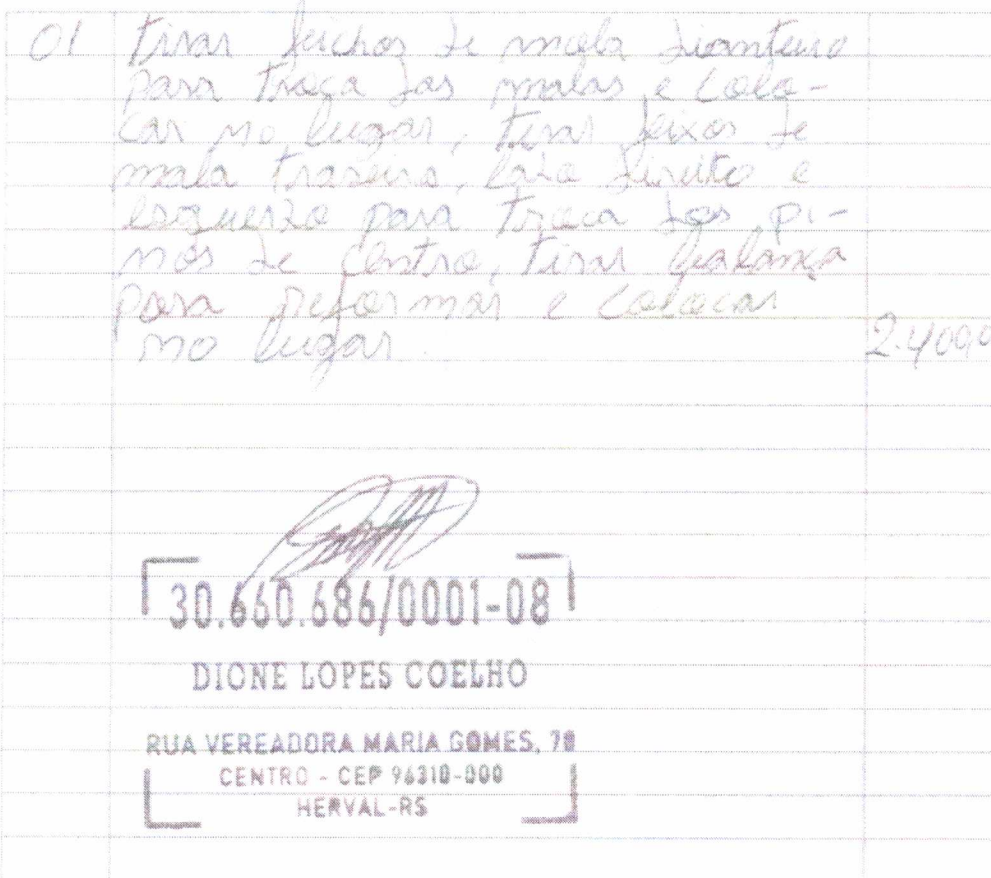 01 tirar feichos de mola dianteiro
para troca das molas e colo-
car no lugar, tirar feixos de
mola traseiro, lado direito e
esquerdo para troca dos pi-
nos de centro, tirar balança
para reformar e colocar
no lugar. 2.400,0
30.660.686/0001-08
DIONE LOPES COELHO
RUA VEREADORA MARIA GOMES, 70
CENTRO - CEP 96310-000
HERVAL-RS